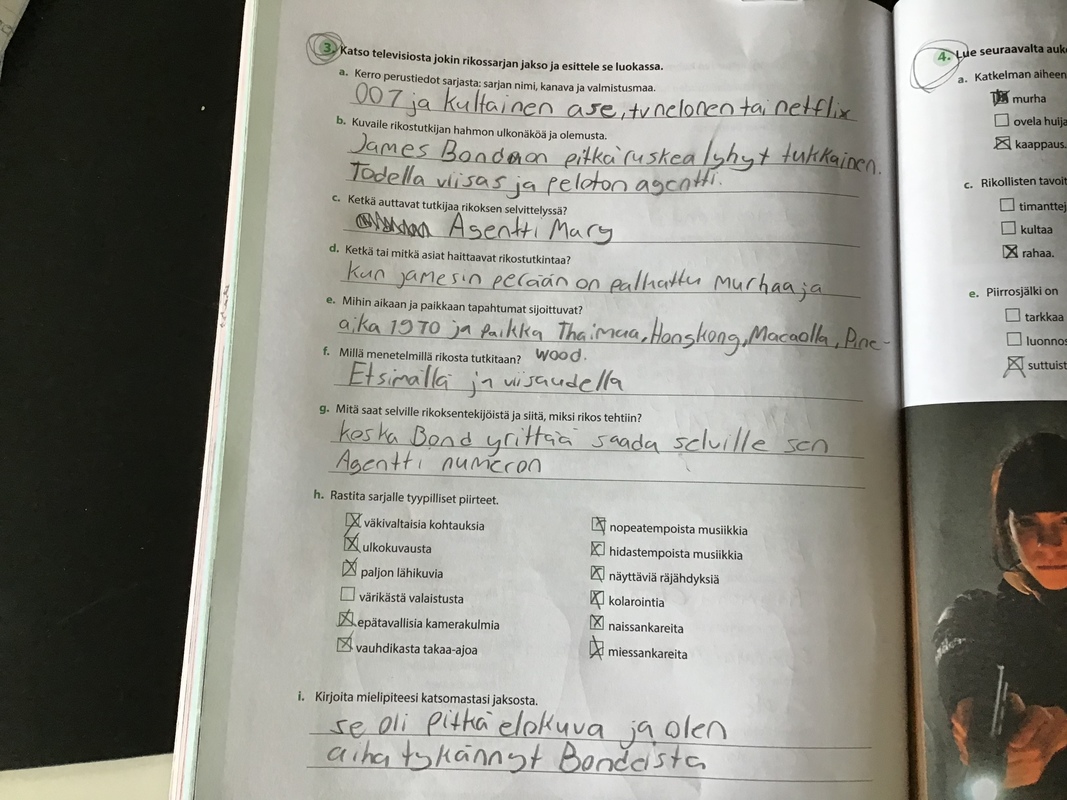 3. Katso televisiosta jokin rikossarjan jakso ja esittele se luokassa.
a. Kerro perustiedot sarjasta: sarjan nimi, kanava ja valmistusmaa.
007 ja kultainen ase, tv nelonen tai netflix
b. Kuvaile rikostutkijan hahmon ulkonäköä ja olemusta.
James Bond on pitkä ruskea lyhyt tukkainen.
Todella viisas ja peloton agentti.
c. Ketkä auttavat tutkijaa rikoksen selvittelyssä?
Agentti Mary
d. Ketkä tai mitkä asiat haittaavat rikostutkintaa?
kun jamesin perään on palkattu murhaaja
e. Mihin aikaan ja paikkaan tapahtumat sijoittuvat?
aika 1970 ja paikka Thaimaa, Hongkong, Macaolla, Pine-
wood.
f. Millä menetelmillä rikosta tutkitaan?
Etsimällä ja viisaudella
g. Mitä saat selville rikoksentekijöistä ja siitä, miksi rikos tehtiin?
koska Bond yrittää saada selville sen
Agentti numeron
h. Rastita sarjalle tyypilliset piirteet.
väkivaltaisia kohtauksia
ulkokuvausta
paljon lähikuvia
värikästä valaistusta
epätavallisia kamerakulmia
vauhdikasta takaa-ajoa
nopeatempoista musiikkia
hidastempoista musiikkia
näyttäviä räjähdyksiä
kolarointia
naissankareita
miessankareita
i. Kirjoita mielipiteesi katsomastasi jaksosta.
se oli pitkä elokuva ja olen
aina tykännyt Bondeista
4. Lue seuraavalta
a. Katkelman aiheen
murha
ovela
kaappaus.
c. Rikollisten
kultaa
rahaa.
e. Piirrosjälki on
tarkkaa